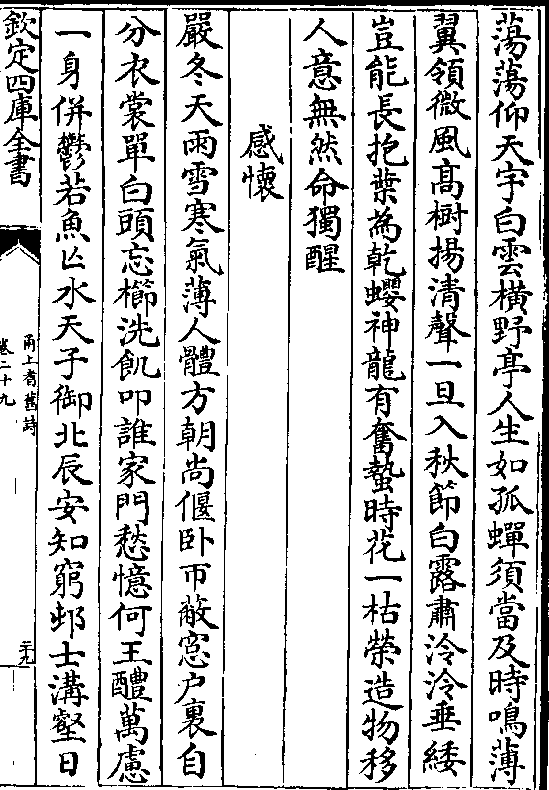 蕩蕩仰天宇白雲橫野亭人生如孤蟬須當及時鳴薄
翼領微風髙樹揚清聲一旦入秋節白露肅泠泠垂緌
豈能長抱葉為乾蠳神龍有奮蟄時花一枯榮造物移
人意無然命獨醒
感懷
嚴冬天雨雪寒氣薄人體方朝尚偃卧帀敝窓户裏自
分衣裳單白頭忘櫛洗飢叩誰家門愁憶何王醴萬慮
一身併鬱若魚亾水天子御北辰安知窮邨士溝壑日
欽定四庫全書
甬上耆舊詩
卷二十九
二十九